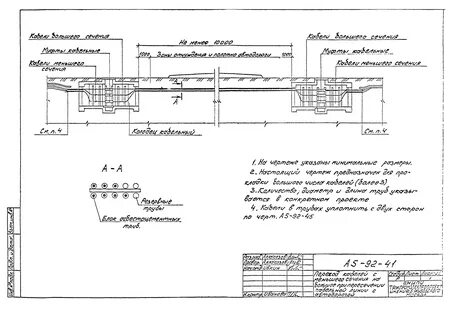 Кабели большего сечения
Муфты кабельные
Кабели меньшего
сечения
Не менее 10000
1000
Зоны отчуждения и полотно автодороги
1000
Кабели большего сечения
Муфты кабельные
Кабели меньшего сечения
А
А
См. п. 4
Колодец кабельный
См. п. 4
А - А
Резервные
трубы
Блок асбестоцементных
труб.
1. На чертеже указаны минимальные размеры.
2. Настоящий чертеж предназначен для про-
кладки большого числа кабелей (более 3)
3. Количество, диаметр и длина труб указы-
вается в конкретном проекте
4. Кабели в трубах уплотнить с двух сторон
по черт. А5-92-45
А5-92-41
Переход кабелей с
меньшего сечения на
большее при пересечении
кабельной линии с
автодорогой